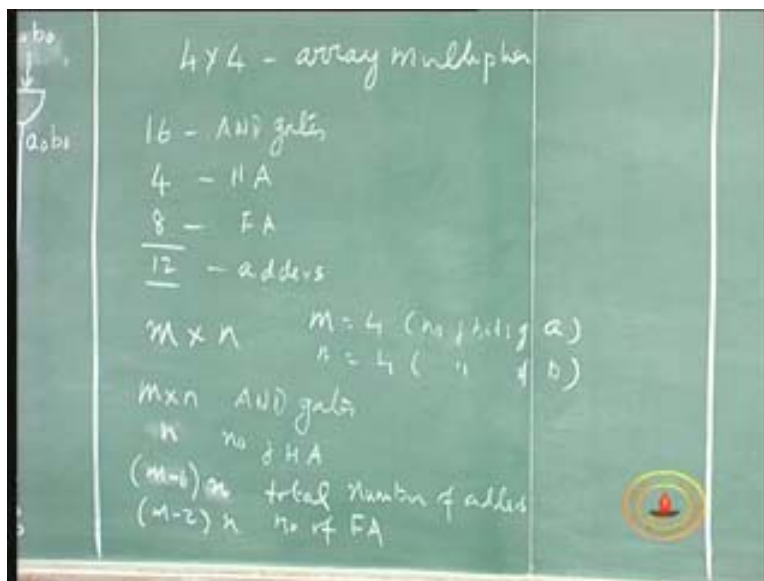 a₀b₀
4x4 - array multiplier
a₀b₀
16 - AND gates
4 - HA
8 - FA
12 - adders
m x n m = 4 (no of bits of a)
n = 4 ( " of b)
mxn AND gates
n no of HA
(m-1) n total number of adders
(m-2) n no of FA